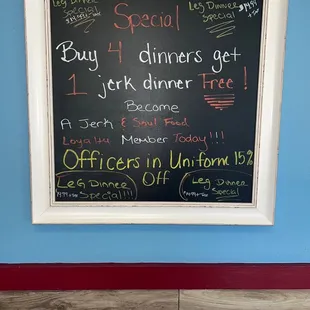 Leg Dinner Special
Special
Leg Dinner Special $14.99 + tax
Buy 4 dinners get
1 jerk dinner Free!
Become
A Jerk & Soul Food
Loyalty Member Today!!!
Officers in Uniform 15%
Off
Leg Dinner
Special!!!
Leg Dinner
Special